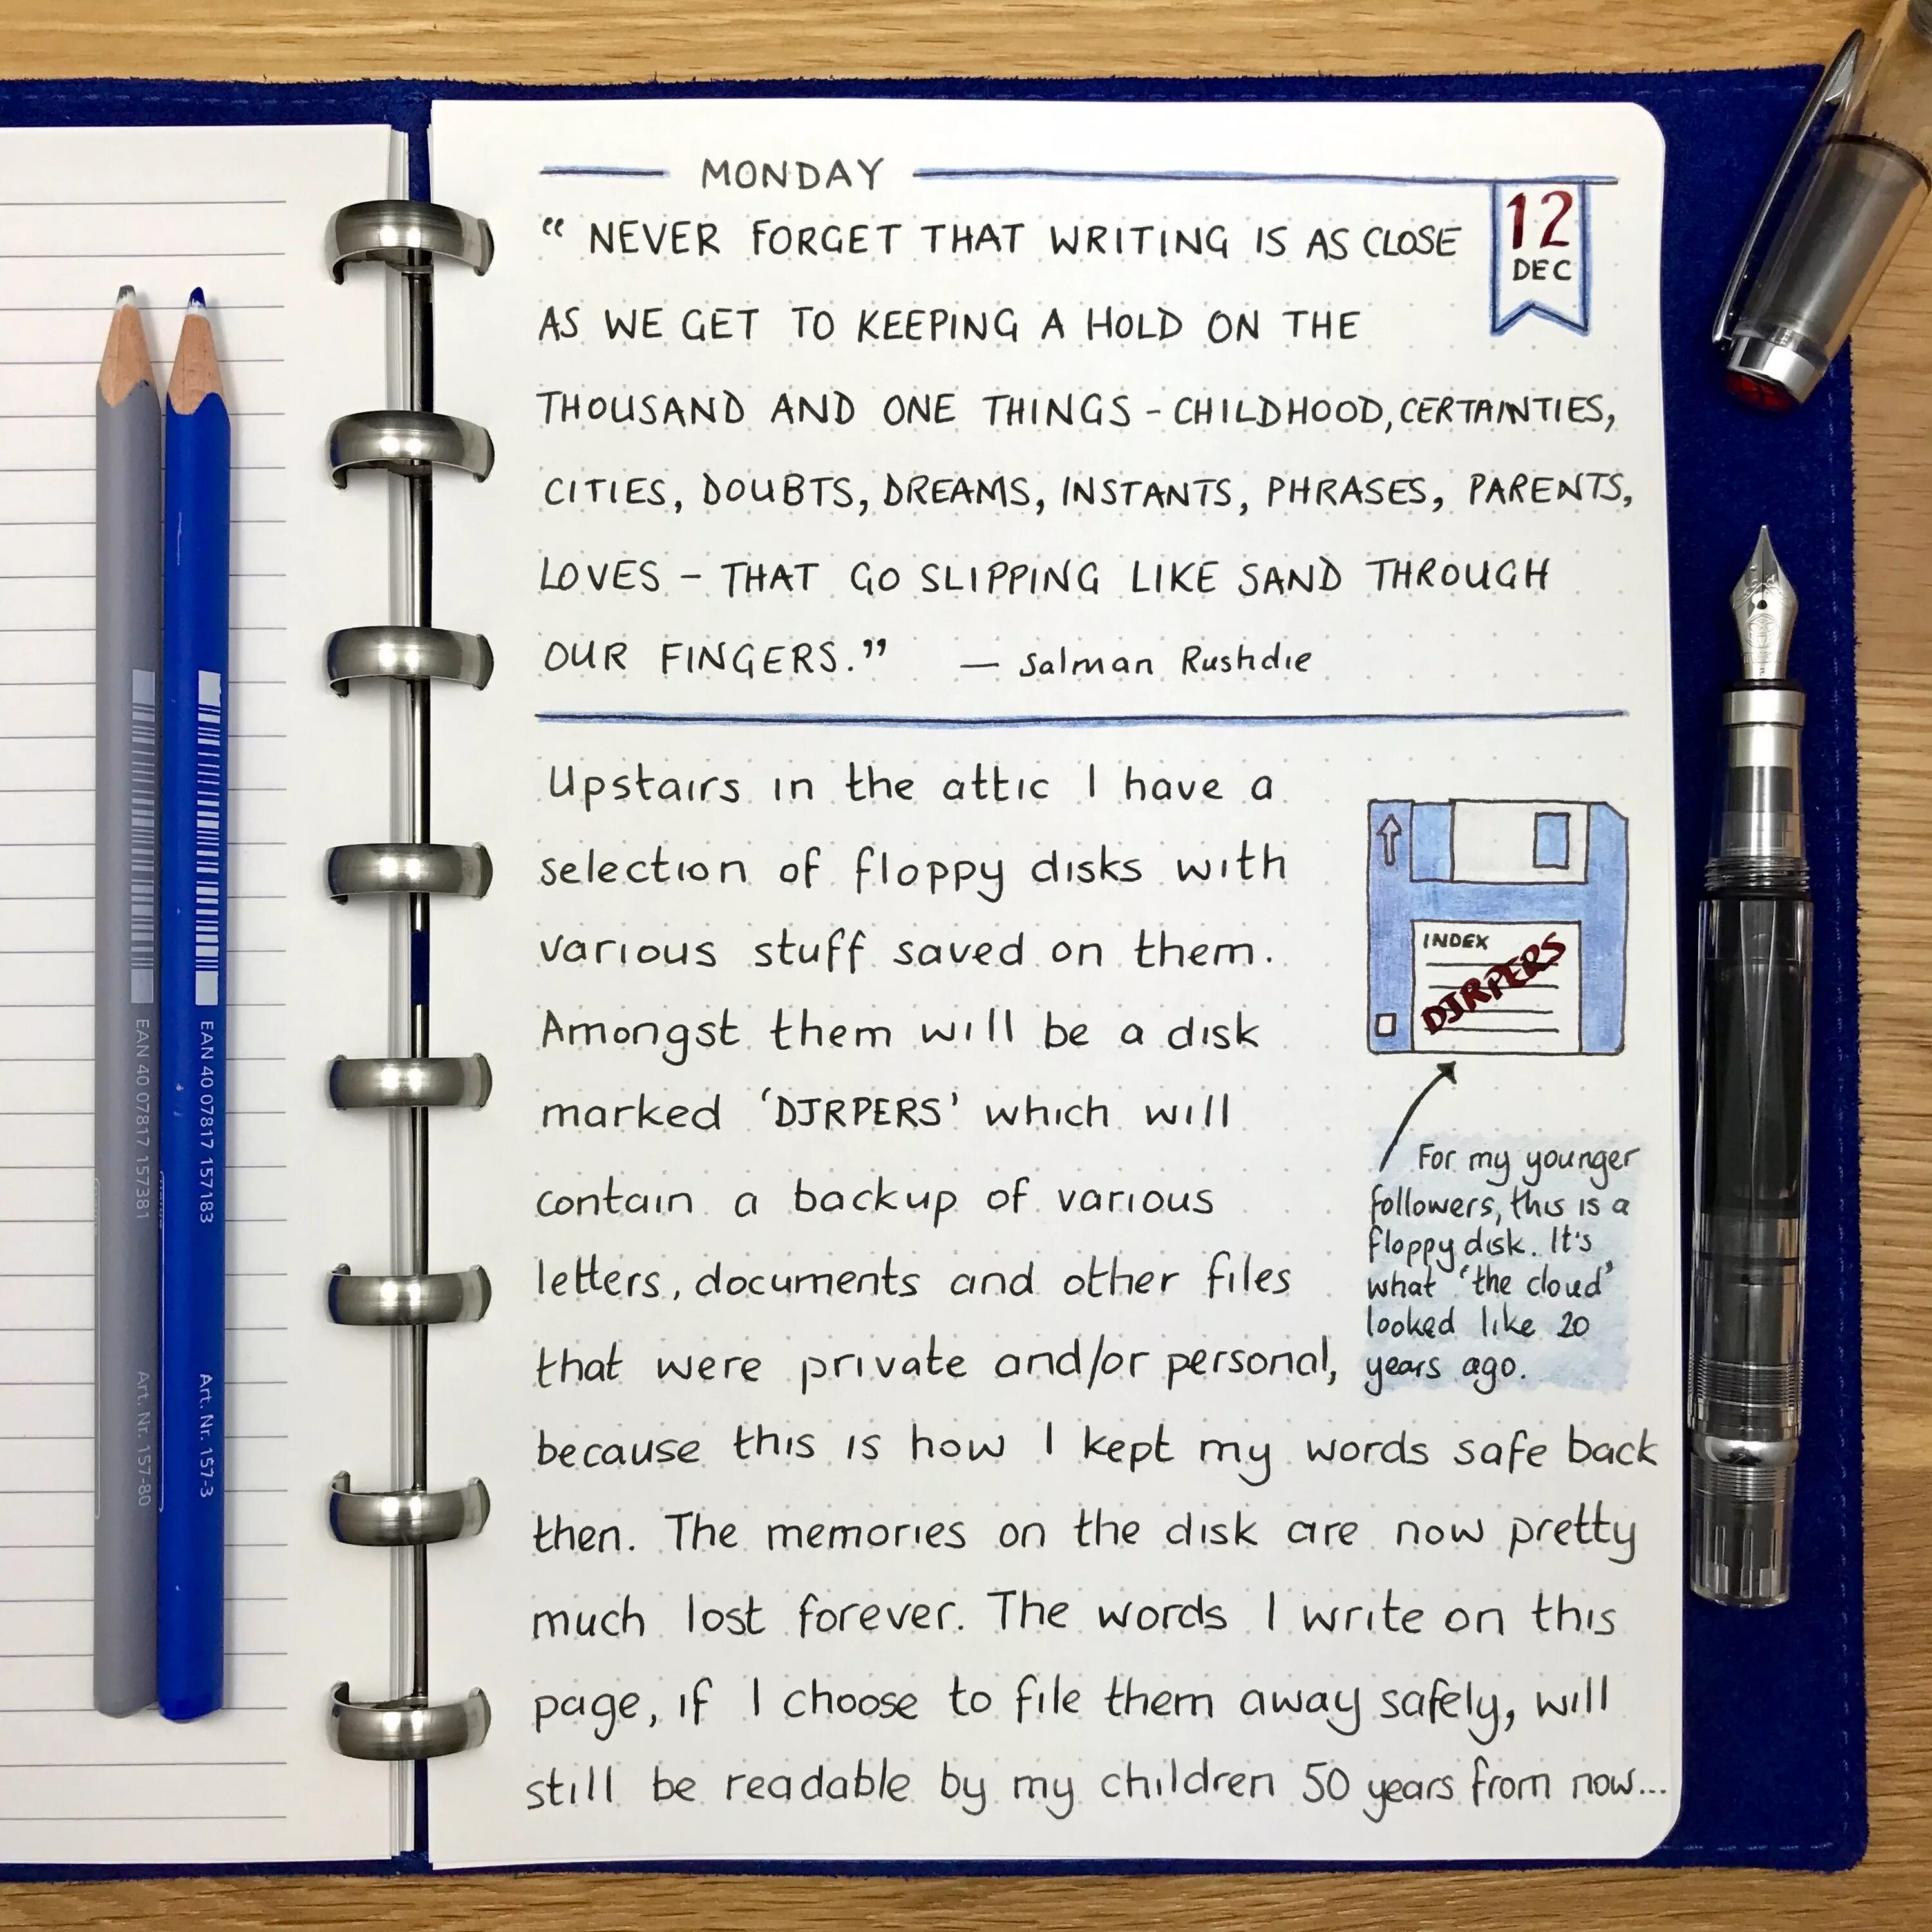 MONDAY
12
DEC
“ NEVER FORGET THAT WRITING IS AS CLOSE
AS WE GET TO KEEPING A HOLD ON THE
THOUSAND AND ONE THINGS - CHILDHOOD, CERTAINTIES,
CITIES, DOUBTS, DREAMS, INSTANTS, PHRASES, PARENTS,
LOVES - THAT GO SLIPPING LIKE SAND THROUGH
OUR FINGERS.” — Salman Rushdie
Upstairs in the attic I have a
selection of floppy disks with
various stuff saved on them.
Amongst them will be a disk
marked ‘DJRPERS’ which will
contain a backup of various
letters, documents and other files
that were private and/or personal,
because this is how I kept my words safe back
then. The memories on the disk are now pretty
much lost forever. The words I write on this
page, if I choose to file them away safely, will
still be readable by my children 50 years from now...
INDEX
DJRPERS
For my younger
followers, this is a
floppy disk. It's
what ‘the cloud’
looked like 20
years ago.
EAN 40 07817 157381
Art. Nr. 157-80
EAN 40 07817 157183
Art. Nr. 157-3